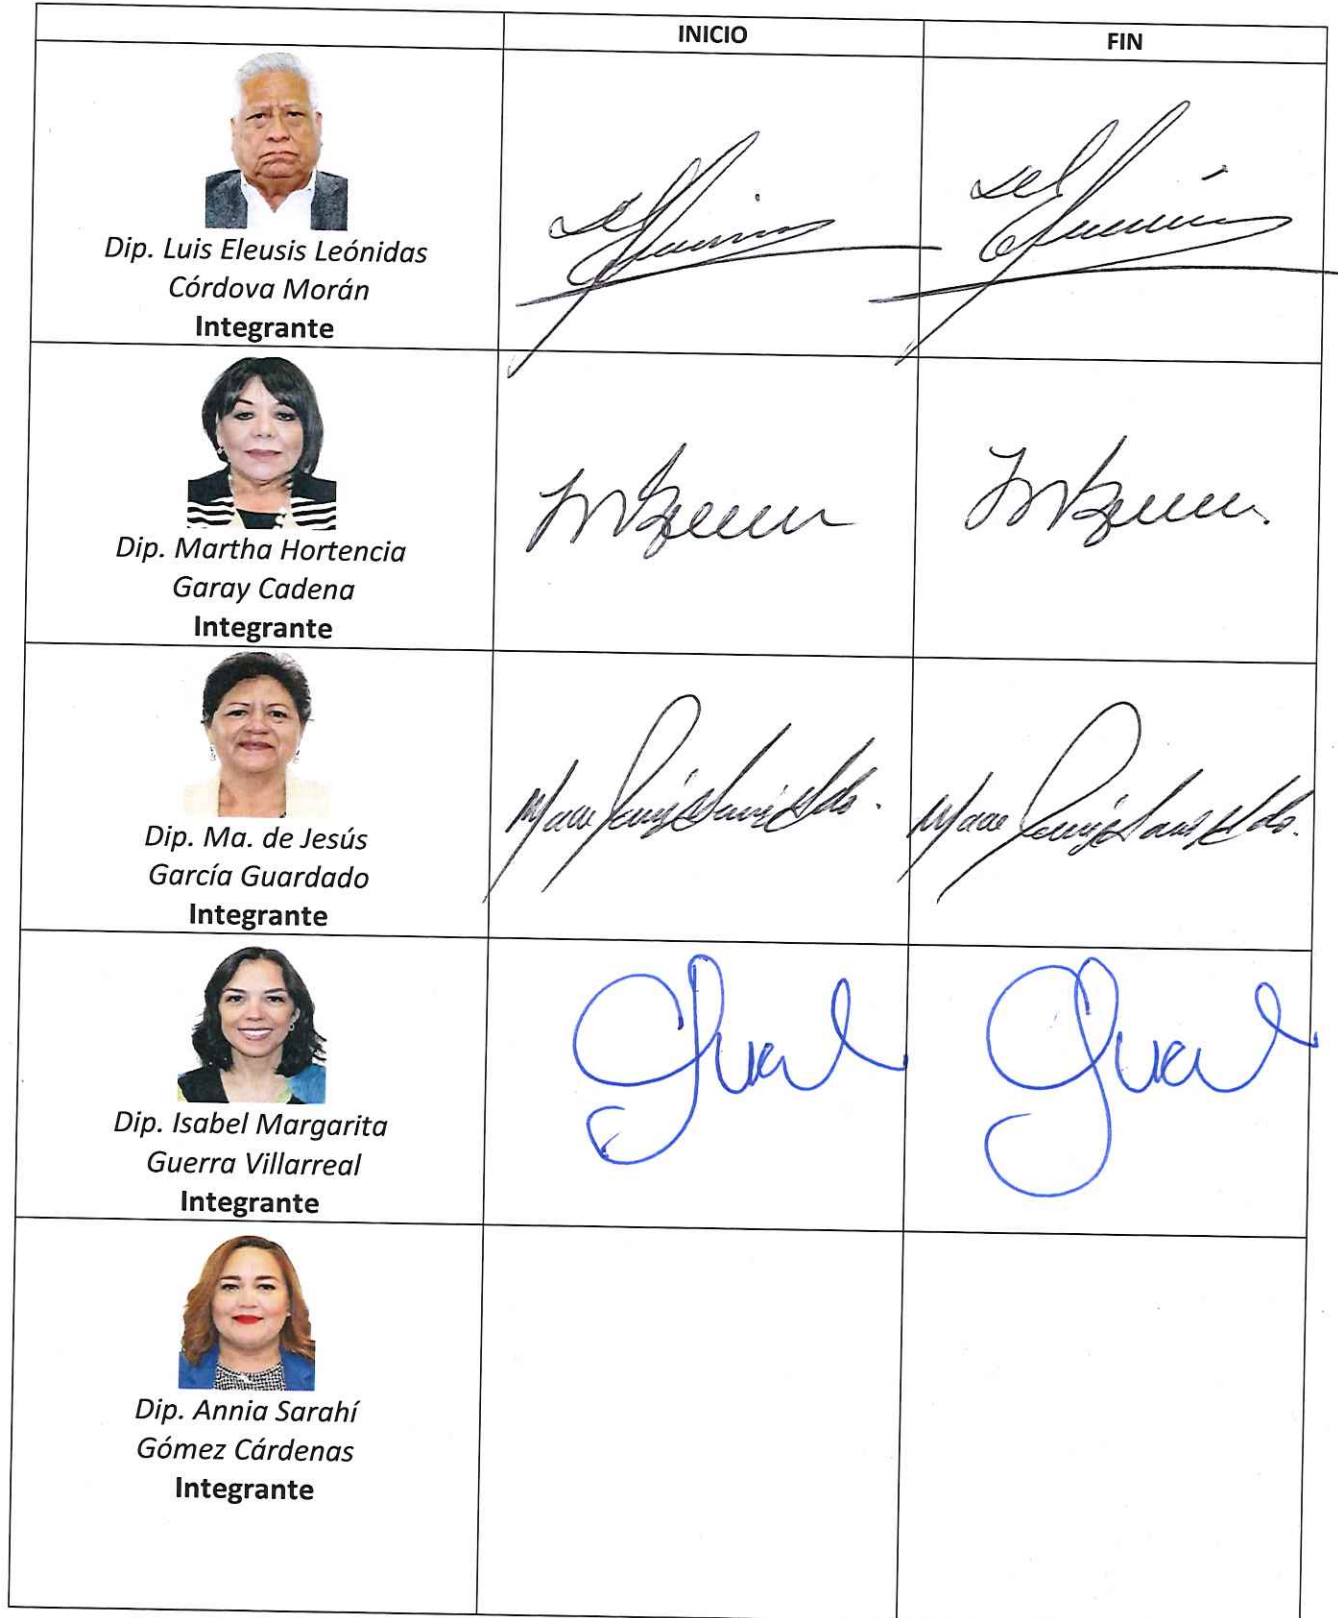 INICIO
FIN
Dip. Luis Eleusis Leónidas
Córdova Morán
Integrante
Dip. Martha Hortencia
Garay Cadena
Integrante
Dip. Ma. de Jesús
García Guardado
Integrante
Dip. Isabel Margarita
Guerra Villarreal
Integrante
Dip. Annia Sarahí
Gómez Cárdenas
Integrante